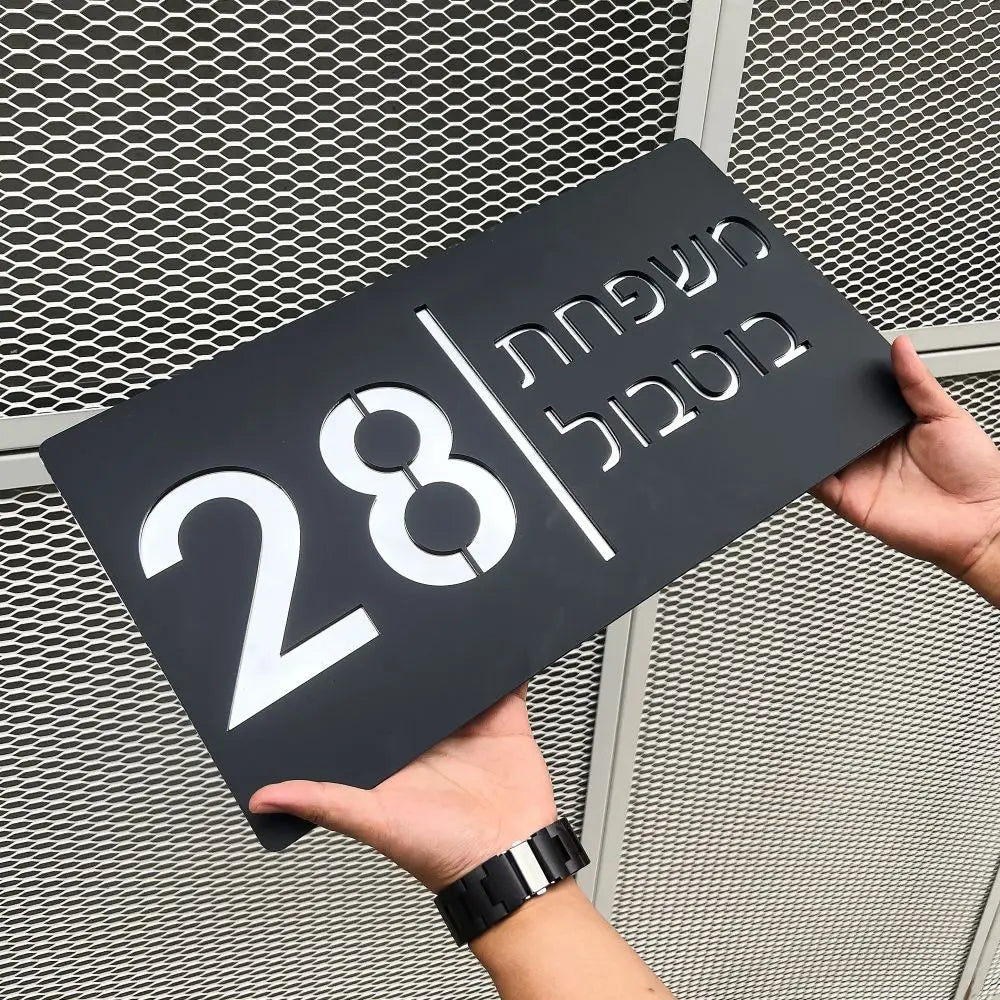 משפחת
בוטבול
28